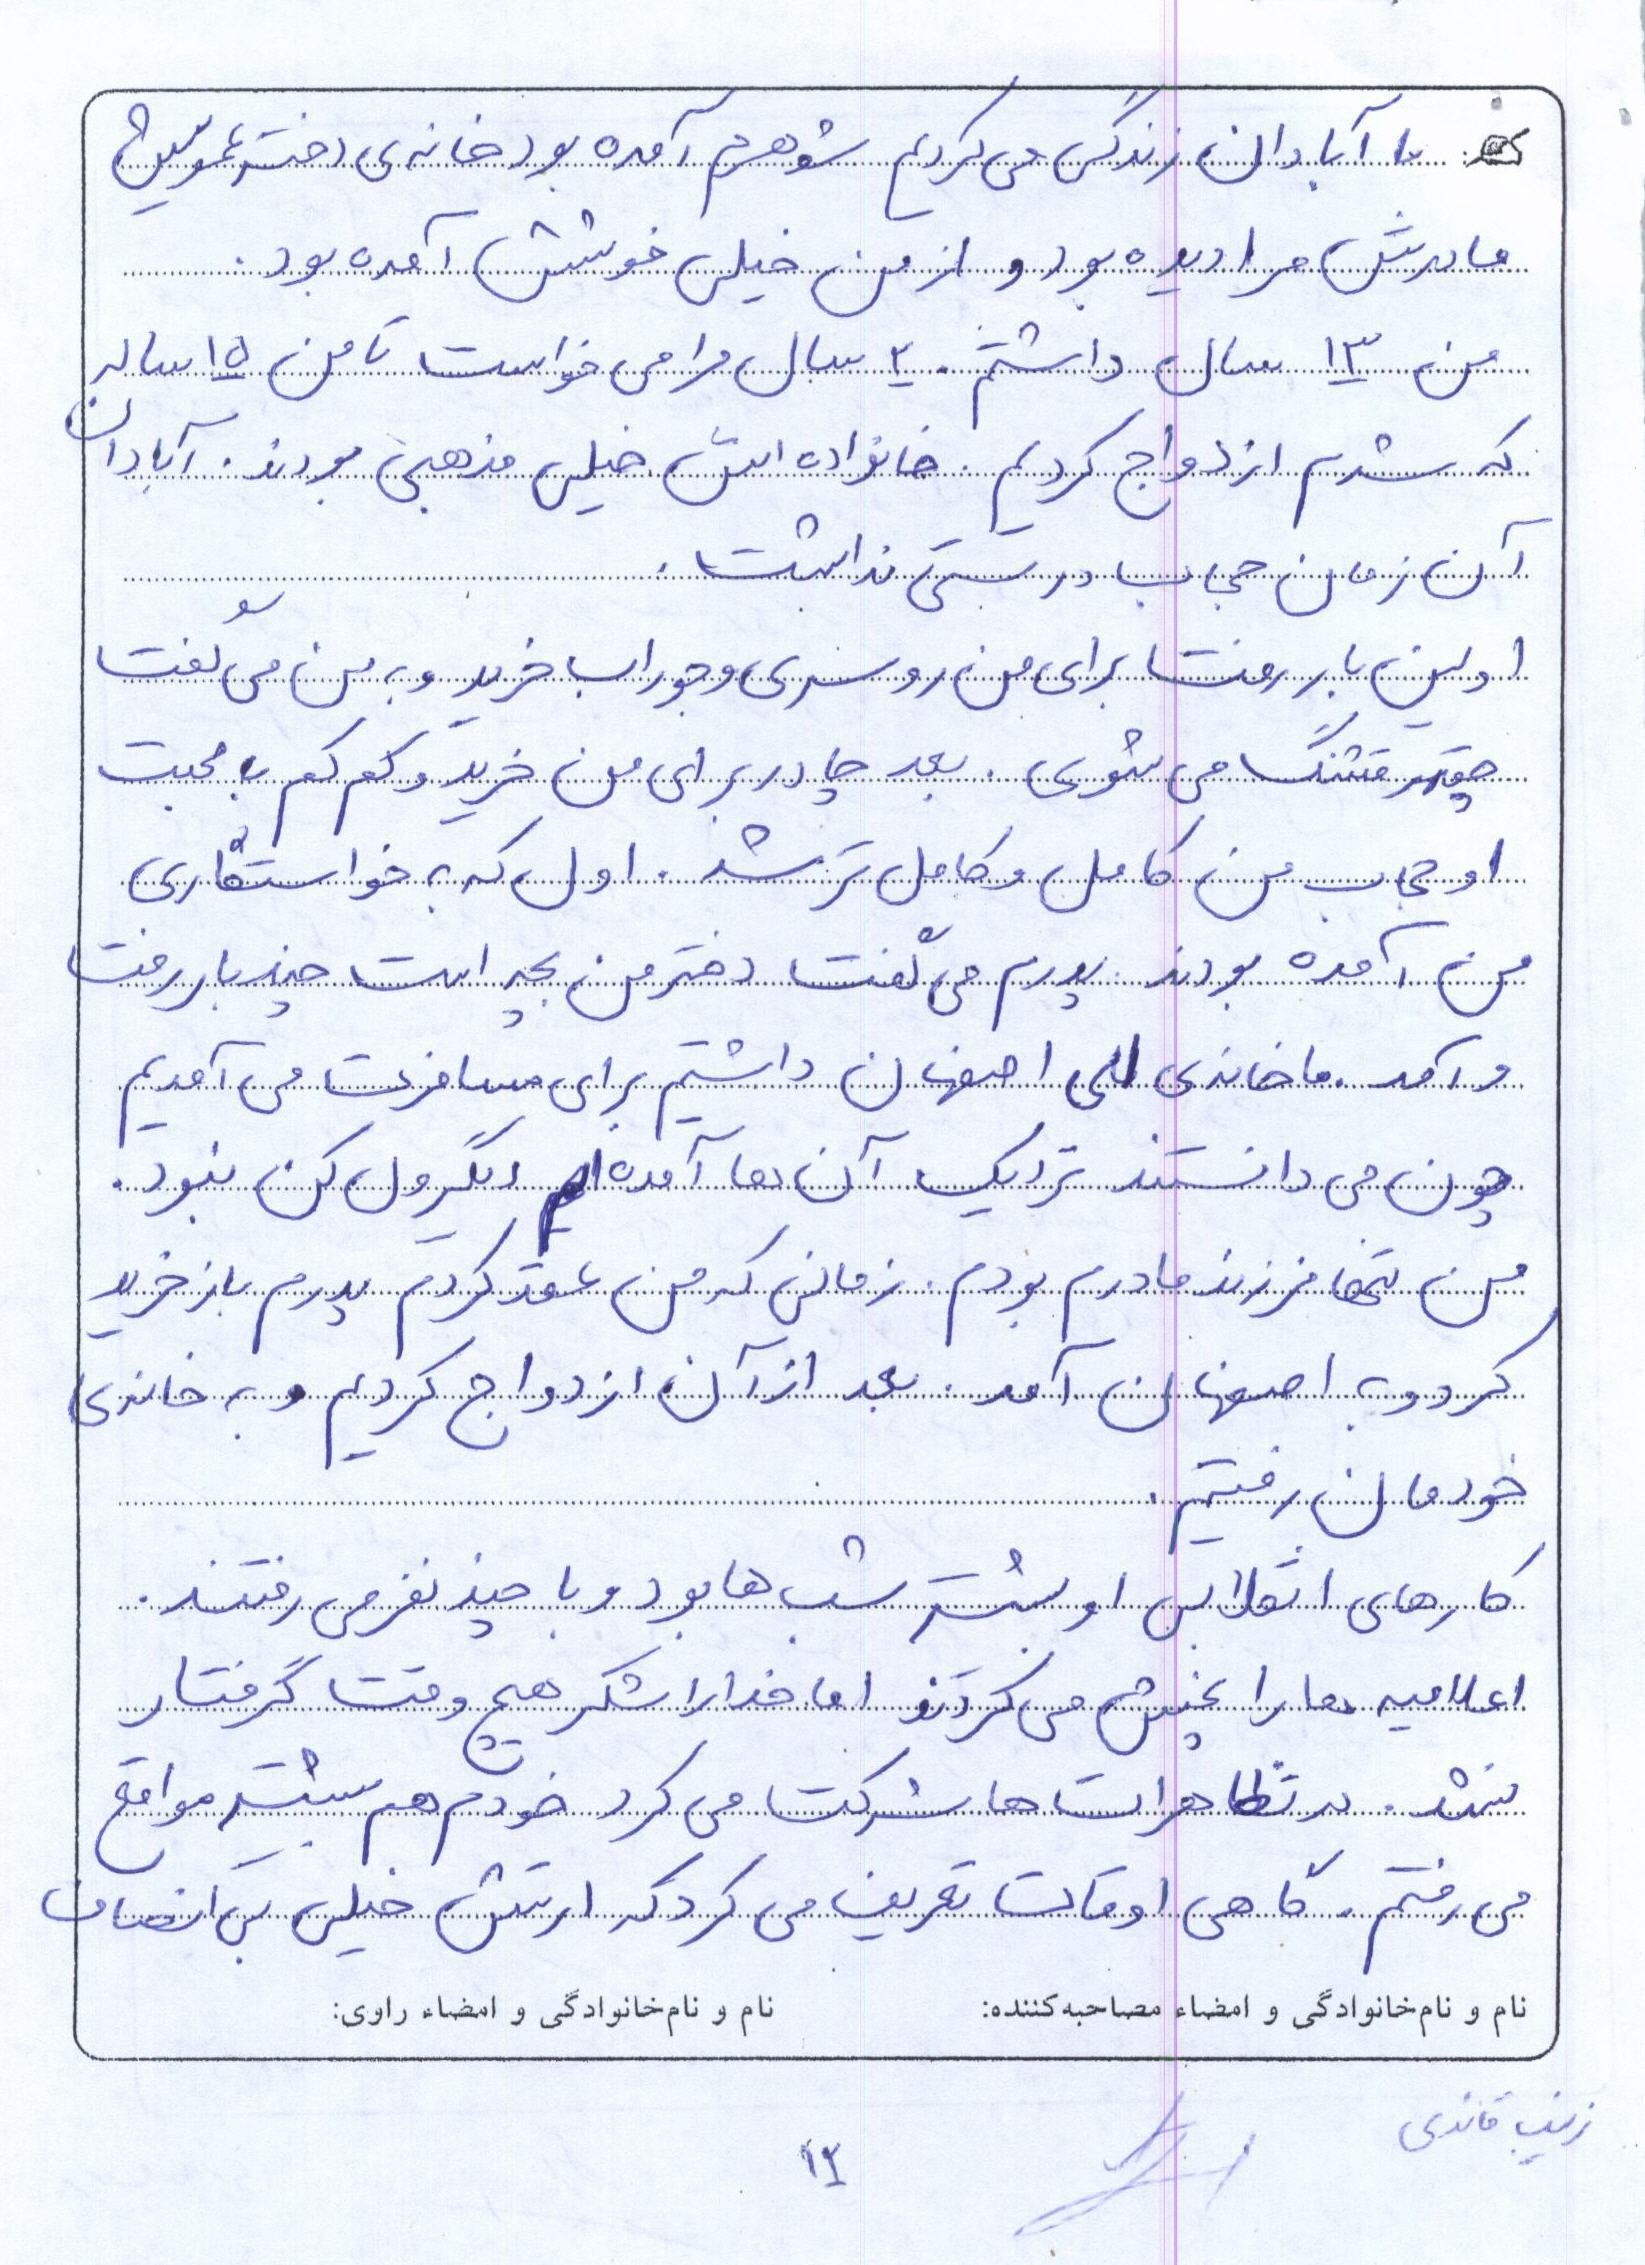 ما آبادان زندگی می کردیم شوهرم آمده بود خانه ی دختر عمویش
مادرش مرا دیده بود و از من خیلی خوشش آمده بود.
من ۱۳ سال داشتم. ۲ سال مرا می خواست تا من ۱۵ ساله
که شدم ازدواج کردیم. خانواده اش خیلی مذهبی بودند. آبادان
آن زمان حجاب درستی نداشت.
اولین بار رفت برای من روسری و جوراب خرید و به من می گفت تو
چقدر قشنگ می شوی. بعد چادر برای من خرید و کم کم با محبت
او حجاب من کامل و کامل تر شد. اول که به خواستگاری
من آمده بودند پدرم می گفت دختر من بچه است چند بار رفت
و آمد. ما خانه ی اصفهان داشتیم برای مسافرت می آمدیم
چون می دانستند نزدیک آن ها آمده ایم دیگر ول کن نبود.
من تنها فرزند مادرم بودم. زمانی که من عقد کردم پدرم باز خرید
کرد و به اصفهان آمد. بعد از آن ازدواج کردیم و به خانه ی
خودمان رفتیم.
کارهای انقلابی او بیشتر شب ها بود و با چند نفر می رفتند.
اعلامیه ها را پخش می کردند اما خدا را شکر هیچ وقت گرفتار
نشد. در تظاهرات ها شرکت می کرد خودم هم بیشتر مواقع
می رفتم. گاهی اوقات تعریف می کرد که ارتش خیلی بی انصاف
نام و نام خانوادگی و امضاء مصاحبه کننده: نام و نام خانوادگی و امضاء راوی:
زینب قائدی
۱۲